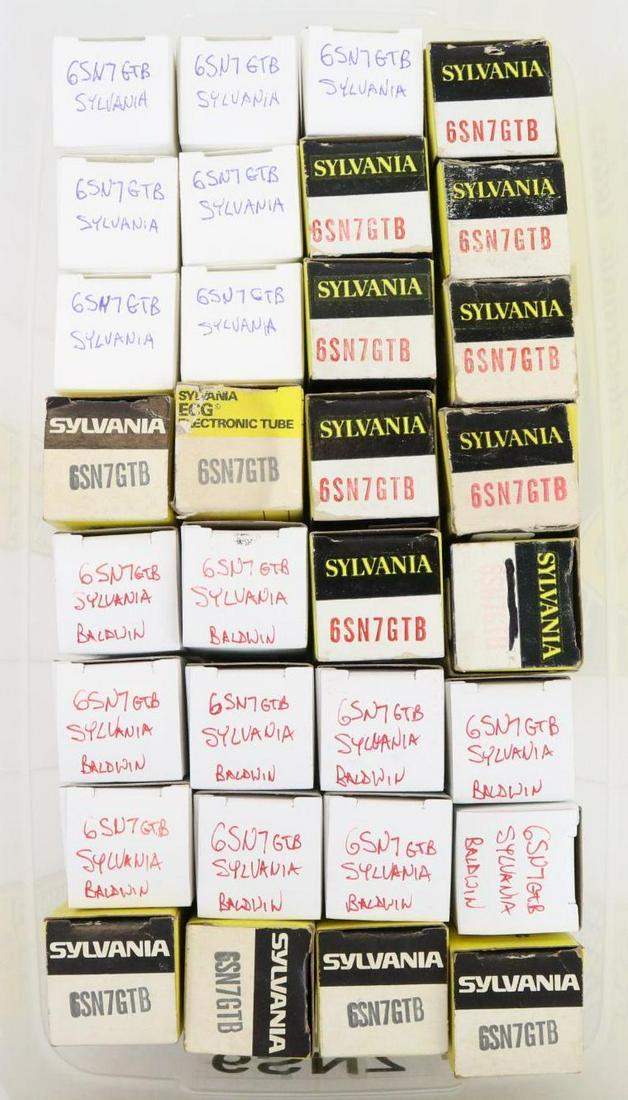 6SN7GTB
SYLVANIA
6SN7GTB
SYLVANIA
6SN7GTB
SYLVANIA
SYLVANIA
6SN7GTB
6SN7GTB
SYLVANIA
6SN7GTB
SYLVANIA
SYLVANIA
6SN7GTB
SYLVANIA
6SN7GTB
6SN7GTB
SYLVANIA
6SN7GTB
SYLVANIA
SYLVANIA
6SN7GTB
SYLVANIA
6SN7GTB
SYLVANIA
6SN7GTB
SYLVANIA
ECG®
ELECTRONIC TUBE
6SN7GTB
SYLVANIA
6SN7GTB
SYLVANIA
6SN7GTB
6SN7GTB
SYLVANIA
BALDWIN
6SN7GTB
SYLVANIA
BALDWIN
SYLVANIA
6SN7GTB
SYLVANIA
6SN7GTB
6SN7GTB
SYLVANIA
BALDWIN
6SN7GTB
SYLVANIA
BALDWIN
6SN7GTB
SYLVANIA
BALDWIN
6SN7GTB
SYLVANIA
BALDWIN
6SN7GTB
SYLVANIA
BALDWIN
6SN7GTB
SYLVANIA
BALDWIN
6SN7GTB
SYLVANIA
BALDWIN
6SN7GTB
SYLVANIA
BALDWIN
SYLVANIA
6SN7GTB
SYLVANIA
6SN7GTB
SYLVANIA
6SN7GTB
SYLVANIA
6SN7GTB
6SN7